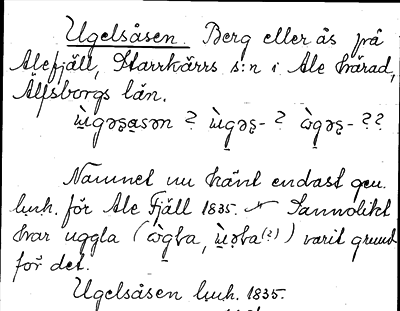 Ugelsåsen. Berg eller ås på
Alefjäll, Starrkärrs s:n i Ale härad,
Älfsborgs län.
ẁgəʂasən ? ẁgəʂ- ? ὼgəʂ- ??
Namnet nu känt endast gm.
lmh. för Ale Fjäll 1835. Sannolikt
har uggla (
(?)) varit grund
för det.
Ugelsåsen lmh. 1835.